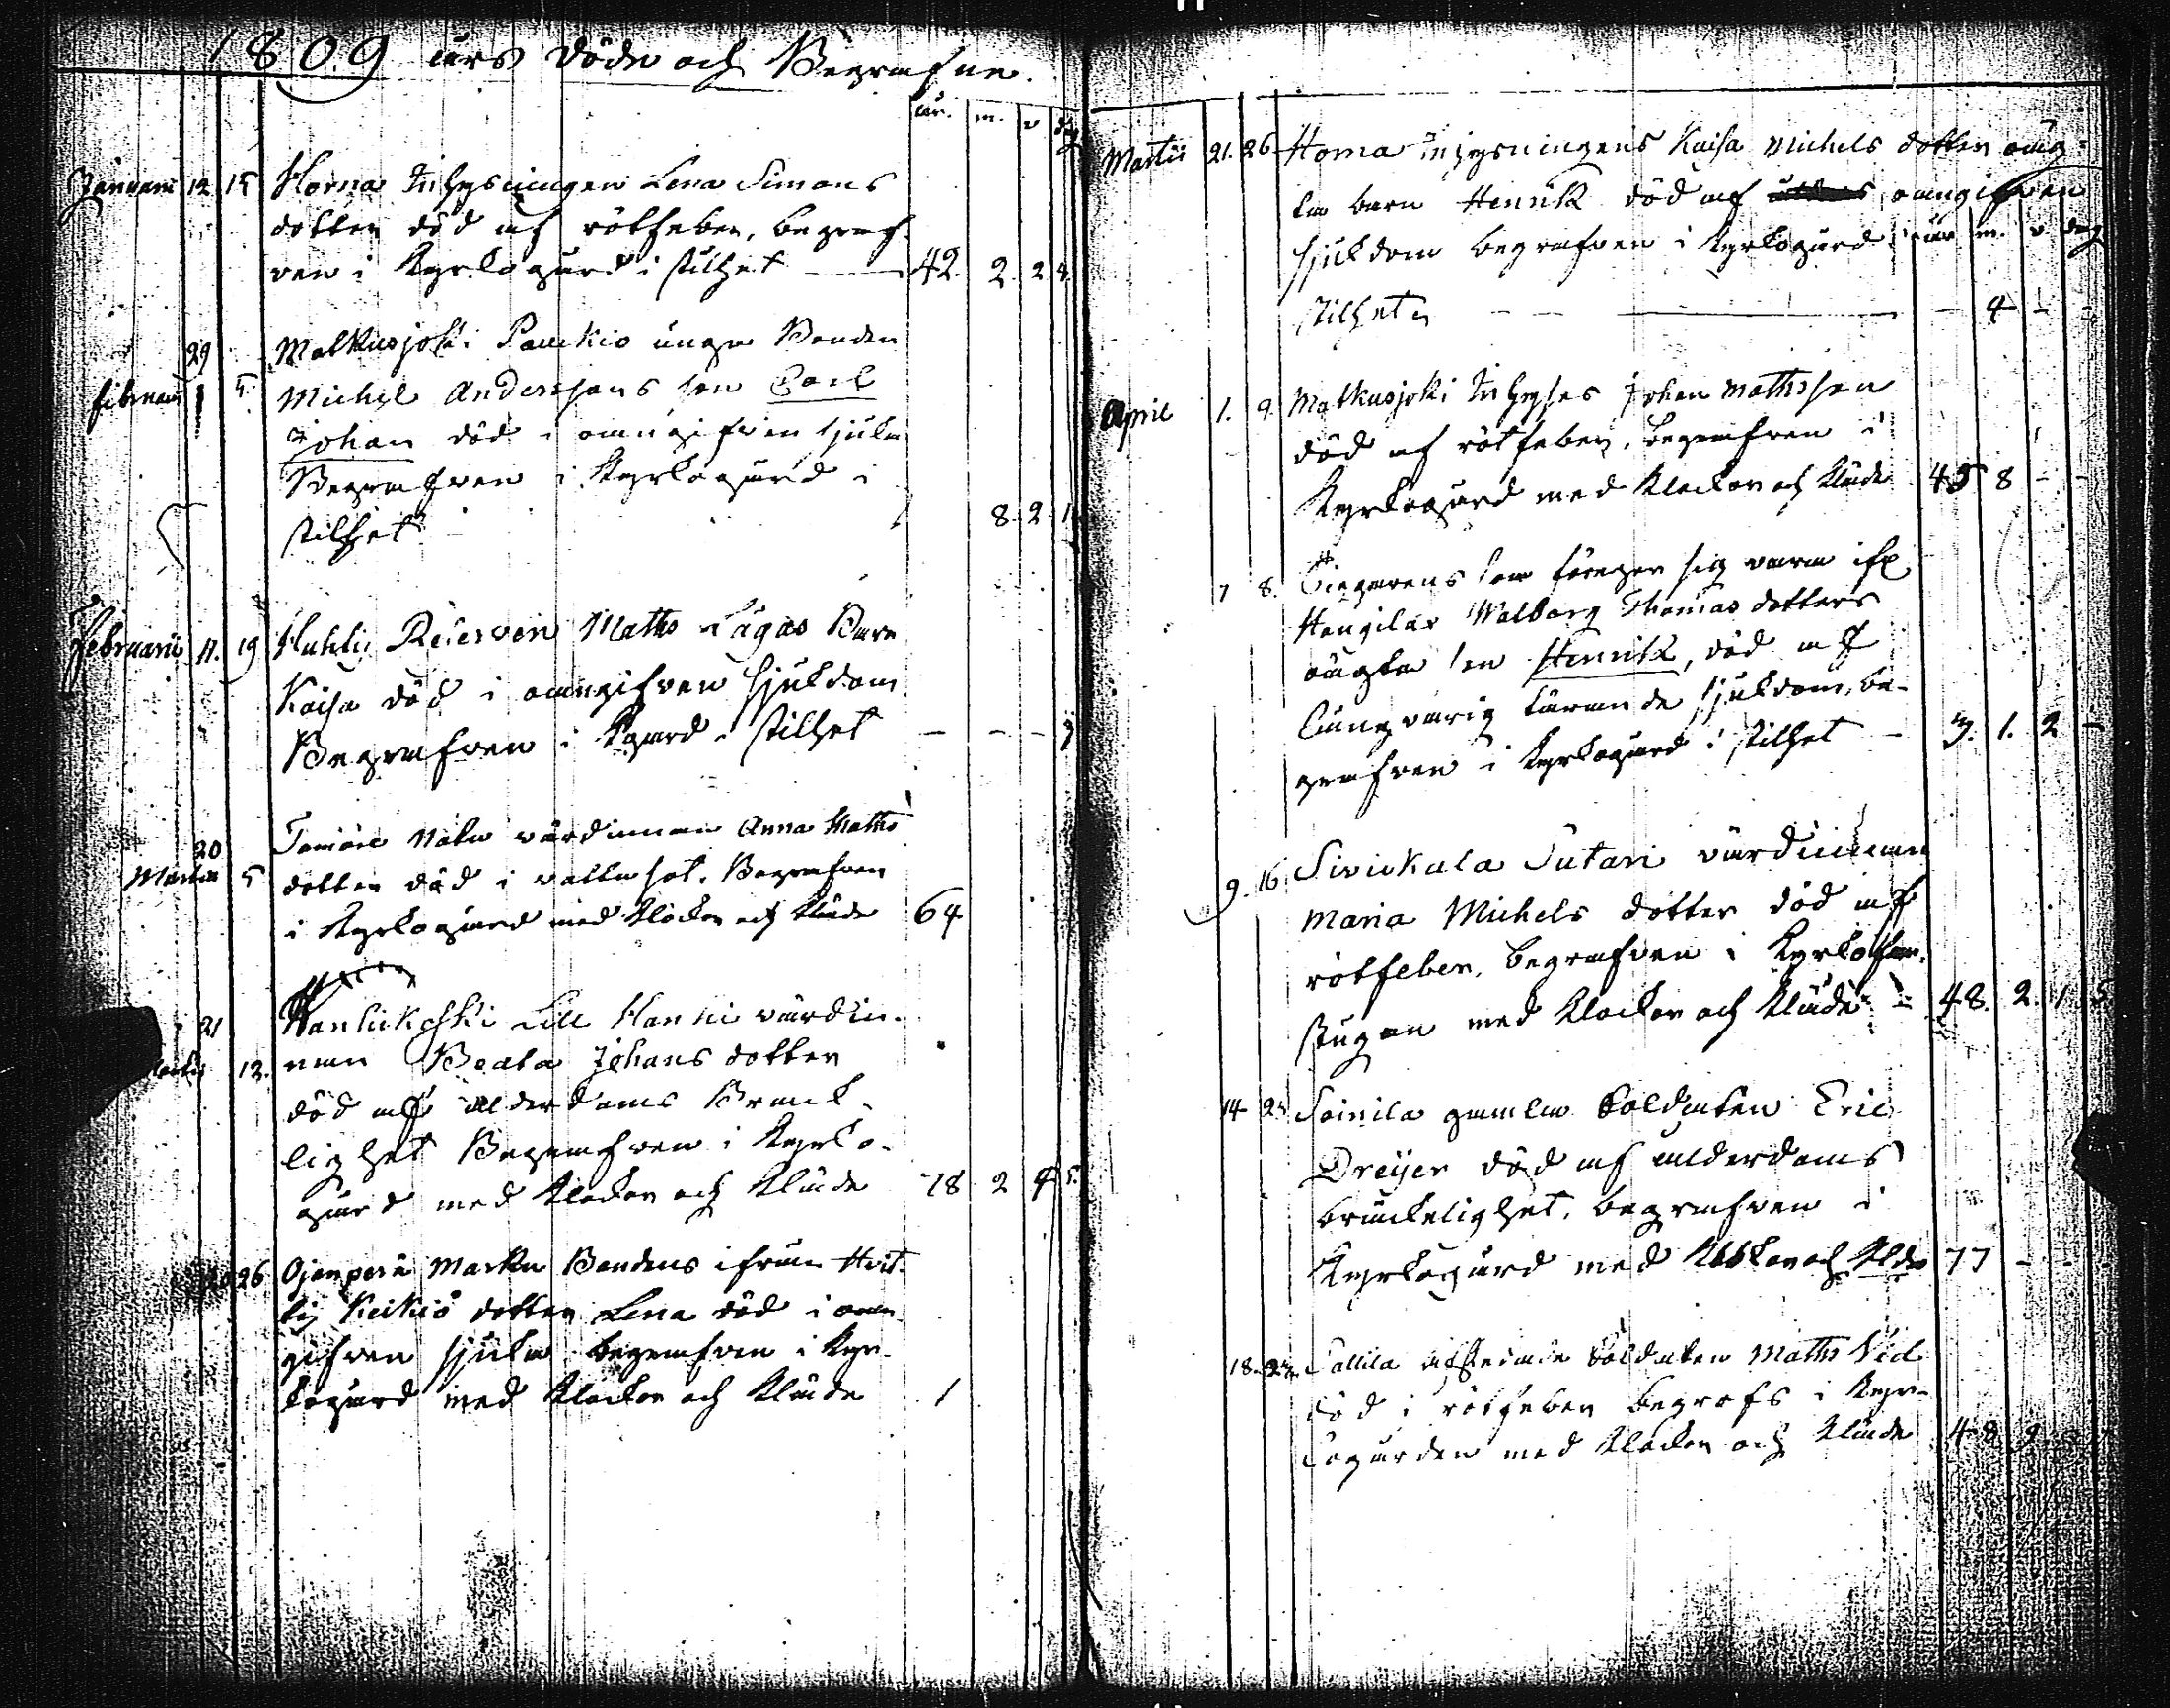 1809 års Döde och Begrafne.
år. m. v dag
Januarii 12 15 Horna Inhysningen Lena Simons
dotter död af rötfeber, begraf-
ven i Kyrkogård i stilhet 42 2 2 4.
29 Matkusjoki Paukio unga Bonden
Februarii 5. Michel Anderssons son Carl
Johan död i omängifven sjuka
Begrafven i Kyrkogård i
stilhet 8. 2. 1
Februarii 11. 19 Huhti Reserven Maths Lagas Barn
Kaisa död i onangifven sjukdom
Begrafven i Kgård i stilhet - - - 3
20 värdinnan Anna Maths
Martii 5 dotter död i vattusot. Begrafven
i Kyrkogård med Klockor och Kläde 64
21 Hanhikoski Lill Hanni värdin-
Martii 12. nan Beata Johans dotter
död af ålderdoms Bräck-
lighet Begrafven i Kyrko-
gård med Klockor och Kläde 78 2 4 5.
20 26 Ojanperä Marku Bondens ifrån Hvit-
tis Keikiö dotter Lena död i onan-
gifven sjuka begrafven i Kyr-
kogård med Klockor och Kläde 1
Martii 21. 26 Horna Inhysningens Kaisa Michels dotter oäg-
ta barn Henrik död af onangifven
sjukdom begrafven i Kyrkogård i år m. v dag
stilhet - 4 - -
April 1. 9. Matkusjoki Inhyses Johan Mathsson
död af rötfeber, begrafven i
Kyrkogård med Klockor och Kläde 45 8 - -
7 8. Tiggarens som föreger sig vara ifr.
Walborg Thomas dotters
oägta son Henrik, död af
långvarig tärande sjukdom, be-
grafven i Kyrkogård i stilhet - 3. 1. 2 -
9. 16 Sivickala Sutari värdinnan
Maria Michels dotter död af
rötfeber, begrafven i Kyrkofar-
stugan med Klockor och Kläde 48. 2. 1 5
14 23 Soinila gamla Soldaten Eric
Dreijer död af ålderdoms
bräckelighet, begrafven i
Kyrkogård med Klockor och Kläde 77 - -
18. 23. Sallila afskedade Soldaten Maths Vid
död i rötfeber begrofs i Kyr-
kogården med Klockor och Kläde 48 9